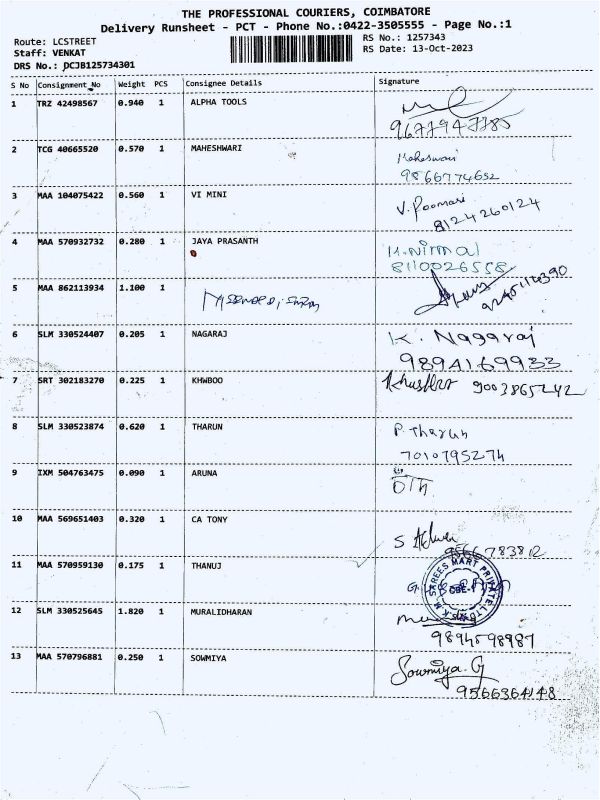 THE PROFESSIONAL COURIERS, COIMBATORE
Delivery Runsheet - PCT - Phone No.:0422-3505555 - Page No.:1
Route: LCSTREET RS No.: 1257343
Staff: VENKAT RS Date: 13-Oct-2023
DRS No.: DCJB125734301
S No Consignment No Weight PCS Consignee Details Signature
1 TRZ 42498567 0.940 1 ALPHA TOOLS
9677947785
2 TCG 40665520 0.570 1 MAHESHWARI Maheswari
9866774652
3 MAA 104075422 0.560 1 VI MINI V. Poomari
8124260124
4 MAA 570932732 0.280 1 JAYA PRASANTH K. Nirmal
8110026558
5 MAA 862113934 1.100 1
6 SLM 330524407 0.205 1 NAGARAJ K. Nagaraj
9894169933
7 SRT 302183270 0.225 1 KHWBOO 9003865242
8 SLM 330523874 0.620 1 THARUN P. Tharun
7010795274
9 IXM 504763475 0.090 1 ARUNA
10 MAA 569651403 0.320 1 CA TONY
9566783812
11 MAA 570959130 0.175 1 THANUJ
SAREES MART PRIVATE LTD
CBE-1
12 SLM 330525645 1.820 1 MURALIDHARAN
9894598987
13 MAA 570796881 0.250 1 SOWMIYA Sowmiya. G
9566364148